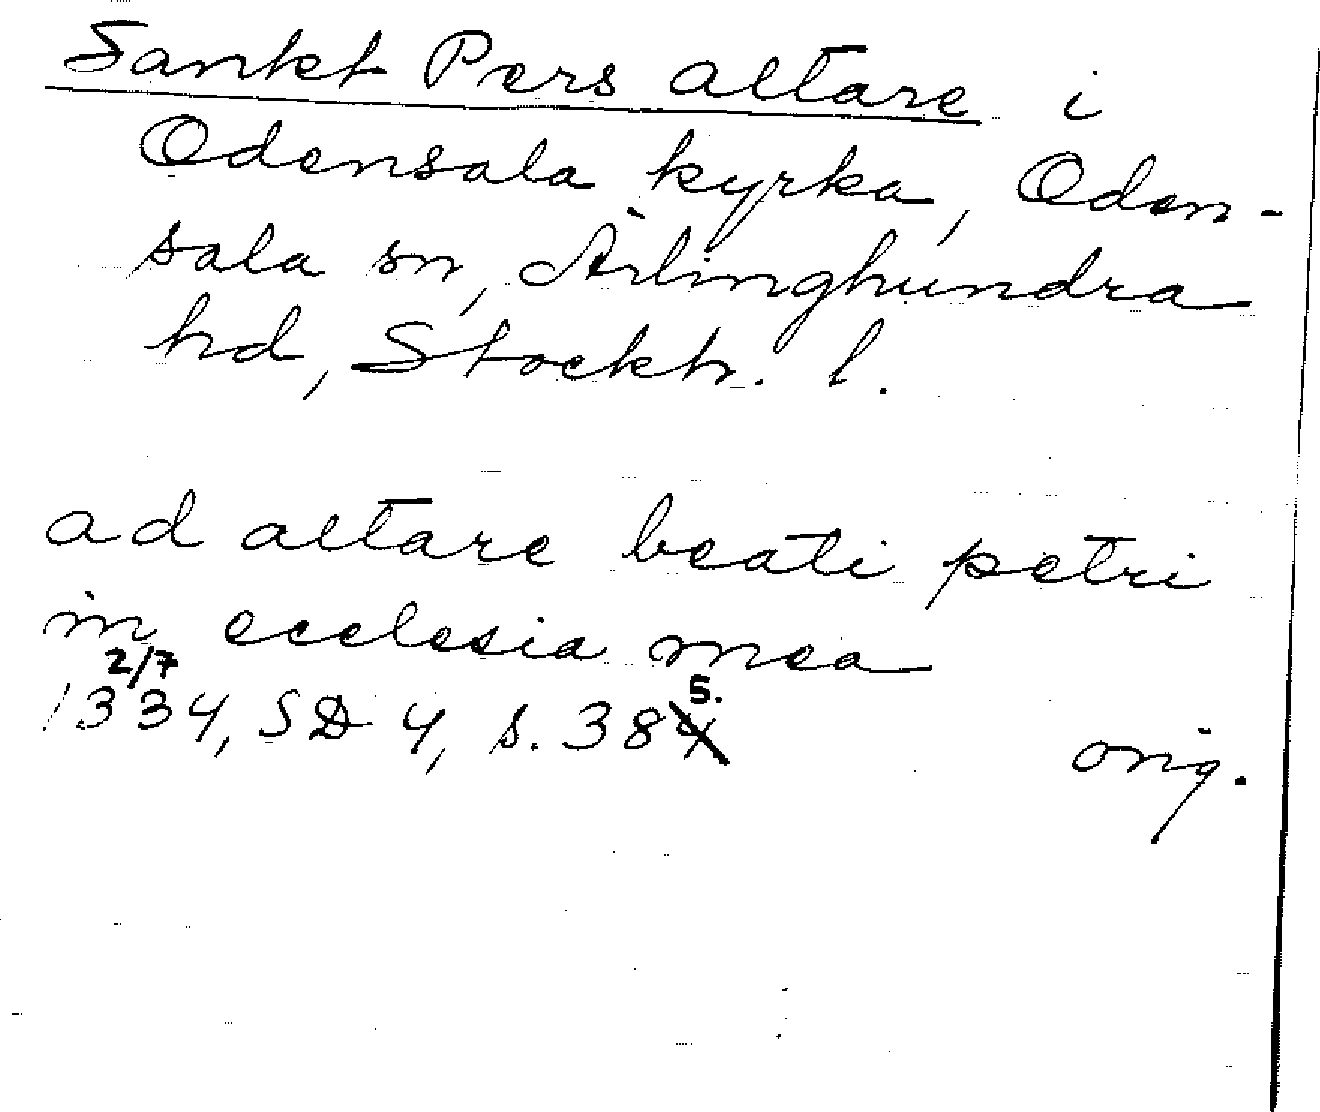 Sankt Pers altare i
Odensala kyrka, Oden-
sala sn, Ärlinghundra
hd, Stockh. l.
ad altare beati petri
in ecclesia mea
2/7
5.
1334, SD 4, s. 384
orig.